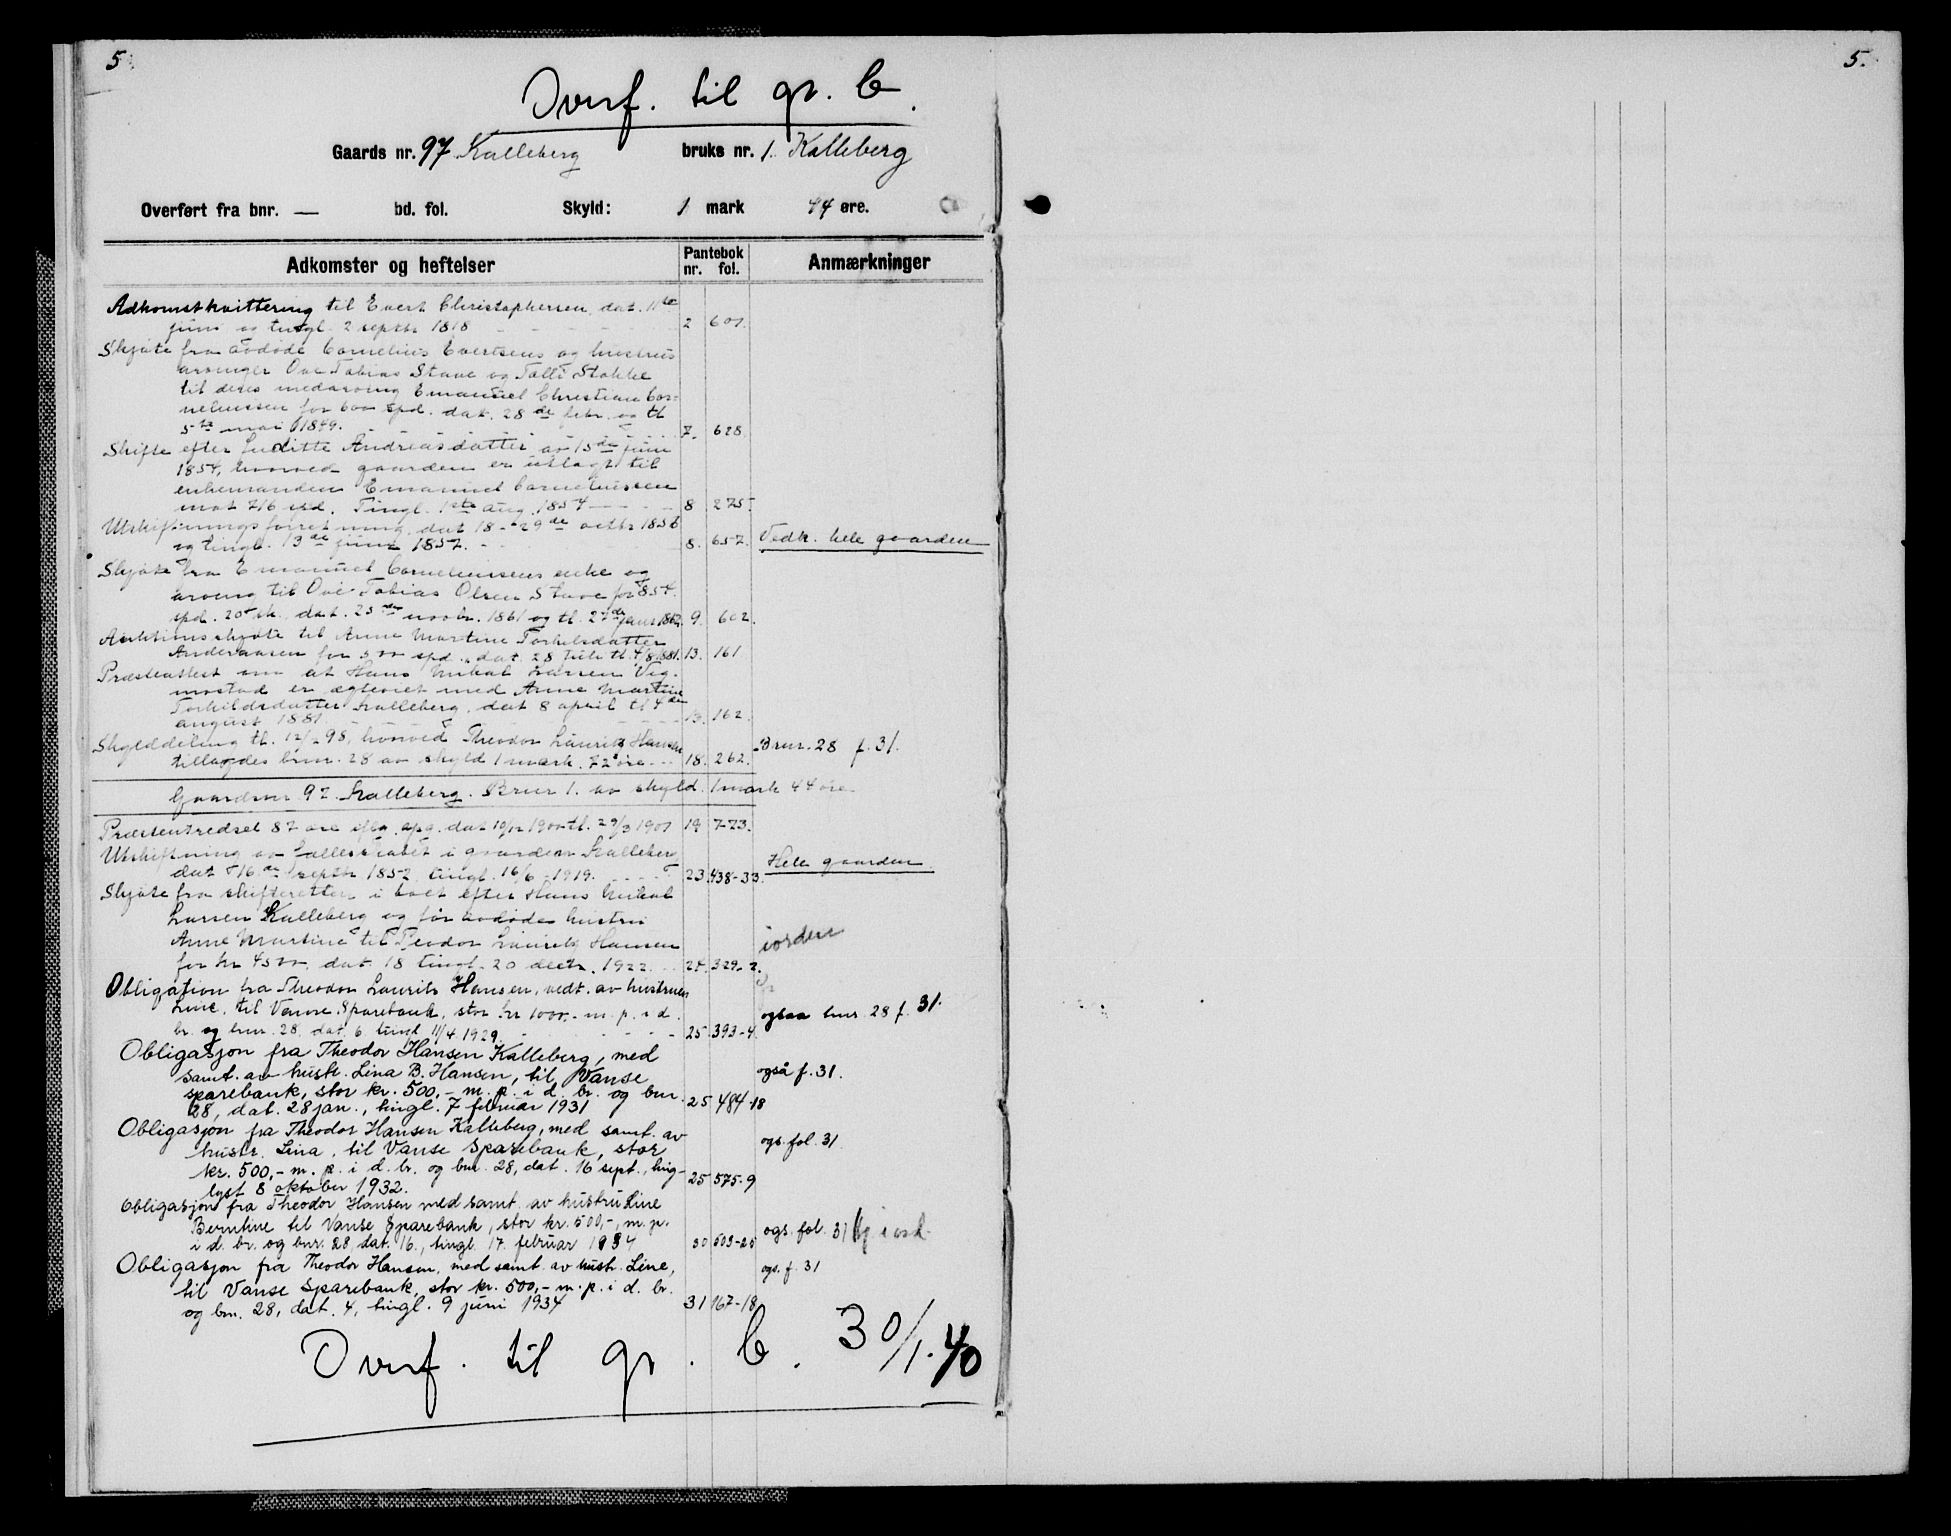 5
5.
Overf. til gr. C.
Gaards nr. 97 Kalleberg bruks nr. 1. Kalleberg
Overført fra bnr. — bd. fol. Skyld: 1 mark 44 øre.
Adkomster og heftelser Pantebok nr. fol. Anmærkninger
Adkomstkvittering til Evert Christophersen, dat. 11te
juni og tingl. 2 septbr 1818 2 601.
Skjøte fra avdøde Cornelius Evertsens og hustrus
arvinger Ove Tobias Stave og Tolli Stokke
til deres medarving Emanuel Christian Cor=
neliussen for 600 spd. dat. 28de febr. og tl
5te mai 1849. 7. 628
Skifte efter Juditte Andreasdatter av 15de juni
1854, hvorved gaarden er utlagt til
enkemanden Emanuel Corneliussen
mot 716 spd. Tingl. 1ste aug. 1854 8 275
Utskiftningsforretning dat 18 - 29de octbr 1856
og tingl. 13de juni 1857. 8. 657. Vedk. hele gaarden
Skjøte fra Emanuel Corneliussens enke og
arving til Ove Tobias Olsen Stave for 854
spd. 20 sk. dat. 25de novbr. 1861 og tl. 27de janr 1862. 9. 602.
Auktionsskjøte til Anne Martine Torkelsdatter
Anderaasen for 500 spd., dat. 28 juli tl. 4/8 1881. 13. 161
Præsteattest om at Hans Mikal Larsen Vig=
mostad er ægteviet med Anne Martine
Torkildsdatter Kalleberg, dat 8 april tl 4de
august 1881 13. 162.
Skylddeling tl. 12/ - 98, hvorved Theodor Laurits Hansen
tillagdes brnr. 28 av skyld 1 mark 72 øre 18. 262. Brnr. 28 f. 31.
Gaardsnr 97. Kalleberg. Brnr 1. av skyld. 1 mark 44 øre
Præstentredsel 87 øre iflg. opg. dat 19/12 1900 tl. 29/3 1901 19 723.
Utskiftning av fællesskabet i gaarden Kalleberg
dat 16de septbr 1852 tingl. 16/6 - 1919. 23. 438-33. Hele gaarden
Skjøte fra skifteretten i boet efter Hans Mikal
Larsen Kalleberg og før avdøde hustru
Anne Martine til Teodor Laurits Hansen
for kr 4500, dat. 18 tingl. 20 decbr. 1922. 24. 329-2. iorden
Obligation fra Theodor Laurits Hansen, vedt. av hustruen
Line, til Vanse Sparebank, stor kr 1000,- m. p. i d.
br. og bnr. 28 dat. 6 tingl 11/4 1929. 25. 393-4 ogsaa bnr. 28 f. 31.
Obligasjon fra Theodor Hansen Kalleberg, med
samt. av hustr. Lina B. Hansen, til Vanse
sparebank, stor kr. 500,- m. p. i d. br. og bnr.
28, dat. 28 jan., tingl. 7 februar 1931 25 484-18 også f. 31.
Obligasjon fra Theodor Hansen Kalleberg, med samt. av
hustr. Lina, til Vanse Sparebank, stor
kr. 500,- m. p. i d. br. og bnr. 28, dat. 16 sept., ting-
lyst 8 oktober 1932. 25 575-9 ogs. fol. 31
Obligasjon fra Theodor Hansen med samt. av hustru Line
Berntine til Vanse Sparebank, stor kr. 500,-, m. p.
i d. br. og bnr. 28, dat. 16., tingl. 17. februar 1934 30 503-20 ogs. fol. 31
Obligasjon fra Theodor Hansen, med samt. av hustr. Line,
til Vanse Sparebank, stor kr. 500,- m. p. i d. br.
og bnr. 28, dat. 4, tingl. 9 juni 1934 31 167-18 ogs. f. 31
Overf. til gr. C. 30/1.40